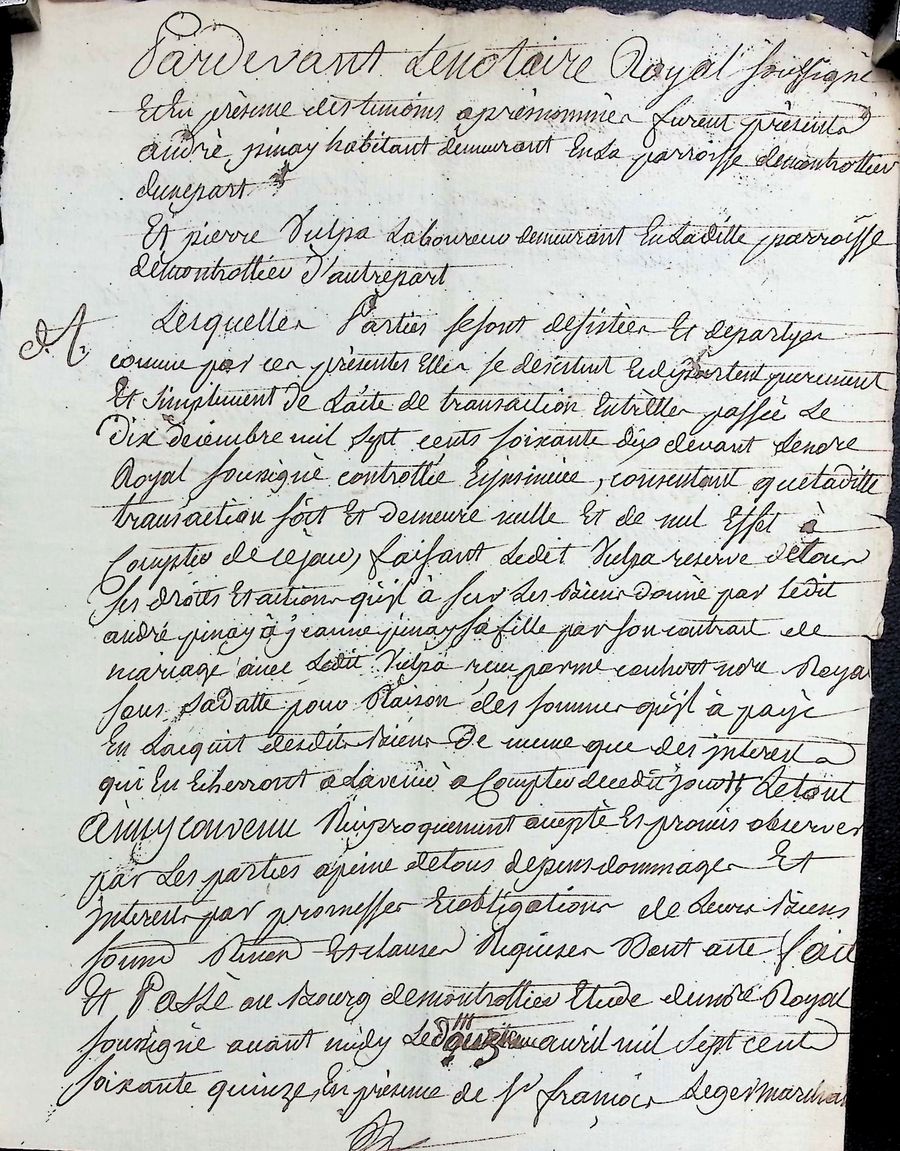 Pardevant Lenotaire Royal soussigné
Et En présence des temoins aprésnommés furent présents
andré pinay habitant demeurant En La parroisse demontrottier
dunepart
Et pierre Vulpa Laboureur demeurant En Laditte parroisse
demontrottier d'autrepart
Lesquelles Parties se sont desistées Et departyes
comme par ces présentes Elles se desistent Et départent purement
Et simplement de L'acte de transaction Entr'elles passée Le
Dix décembre mil sept cents soixante dix devant Lenore
Royal soussigné controllée Et insinuée, consentant que laditte
transaction soit Et demeure nulle Et de nul Effet à
Compter de ce jour, faisant Ledit Vulpa reserve de tous
ses droits Et actions qu'il à sur Les Biens donné par Ledit
andré pinay à jeanne pinay sa fille par son contrat de
mariage avec Ledit Vulpa recu par me nore Roya
sous sa Datte pour Raison des sommes qu'il à payé
En L'acquit desdits Biens De meme que des jnterests
qui En Echerront a L'avenir à Compter de cedit jour Le tout
Ainsy convenu Reciproquement accepté Et promis observer
par Les parties a peine de tous depens dommages Et
jnterests par promesses Et obligations de Leurs Biens
soumis Renon Et clauses Requises Dont acte fait
Et Passé au Bourg de montrottier Etude dunore Royal
soussigné avant midy Le avril mil sept cents
soixante quinze, En présence de Sr françois Leger marchan